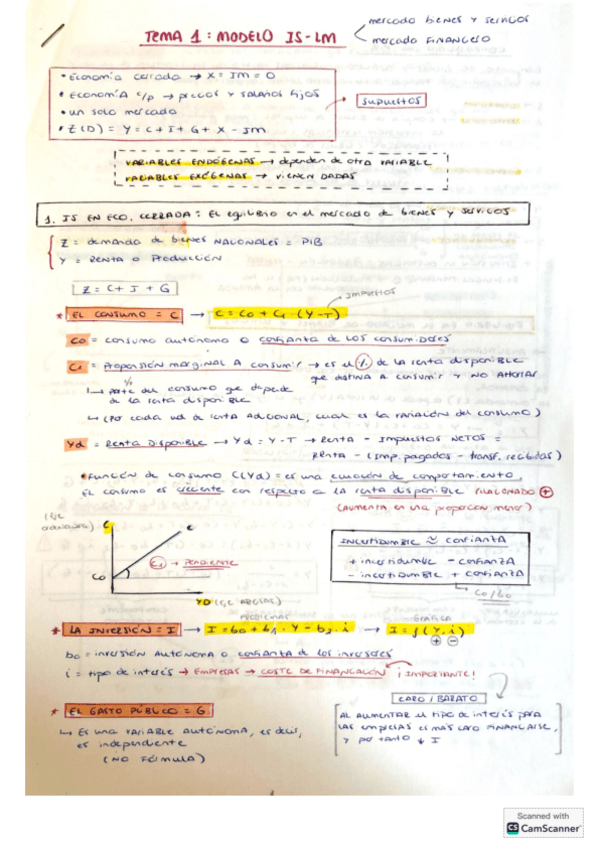 mercado bienes y servicios
TEMA 1: MODELO IS-LM
mercado FINANCIERO
• Economía cerrada → X = IM = 0
• ECONOMÍA c/p → precios y salarios fijos
• un solo mercado
• Z(D) = Y = C + I + G + X - IM
SUPUESTOS
VARIABLES ENDÓGENAS → dependen de otra VARIABLE
VARIABLES EXÓGENAS → VIENEN DADAS
1. IS EN ECO. CERRADA: El equilibrio en el mercado de bienes y servicios
Z = demanda de bienes NACIONALES = PIB
Y = RENTA o PRODUCCIÓN
Z = C + I + G
IMPUESTOS
* EL CONSUMO = C → C = C0 + C1 · (Y-T)
C0 = consumo autónomo o confianza de los consumidores
C1 = PROPENSIÓN MARGINAL A CONSUMIR → es el % de la renta disponible
que destina a consumir y NO AHORRAR
↳ parte del consumo que depende
de la renta disponible
↳ (Por cada ud de renta ADICIONAL, cual es la variación del consumo)
Yd = RENTA DISPONIBLE → Yd = Y - T → RENTA - IMPUESTOS NETOS =
RENTA - (Imp. pagados - transf. recibidas)
• FUNCIÓN DE CONSUMO C(Yd) = es una ecuación de comportamiento,
EL consumo es creciente con respecto a LA renta disponible RELACIONADO +
(AUMENTA en una proporción menor)
(EJE ordenadas)
C
C
C0
C1 → PENDIENTE
YD (EJE ABCISAS)
INCERTIDUMBRE ≈ CONFIANZA
+ incertidumbre - confianza
- incertidumbre + confianza
C0/b0
PROBLEMAS
GRÁFICA
* LA INVERSIÓN = I → I = b0 + b1 · Y - b2 · i → I = f(Y, i)
+ -
b0 = inversión AUTÓNOMA o confianza de los inversores
i = tipo de interés → EMPRESAS → COSTE DE FINANCIACIÓN ¡IMPORTANTE!
CARO / BARATO
* EL GASTO PÚBLICO = G
↳ Es una VARIABLE AUTÓNOMA, es decir,
es independiente
(NO FÓRMULA)
AL AUMENTAR el tipo de interés para
las empresas es más caro FINANCIARSE,
Y por tanto ↓ I
Scanned with
CS CamScanner